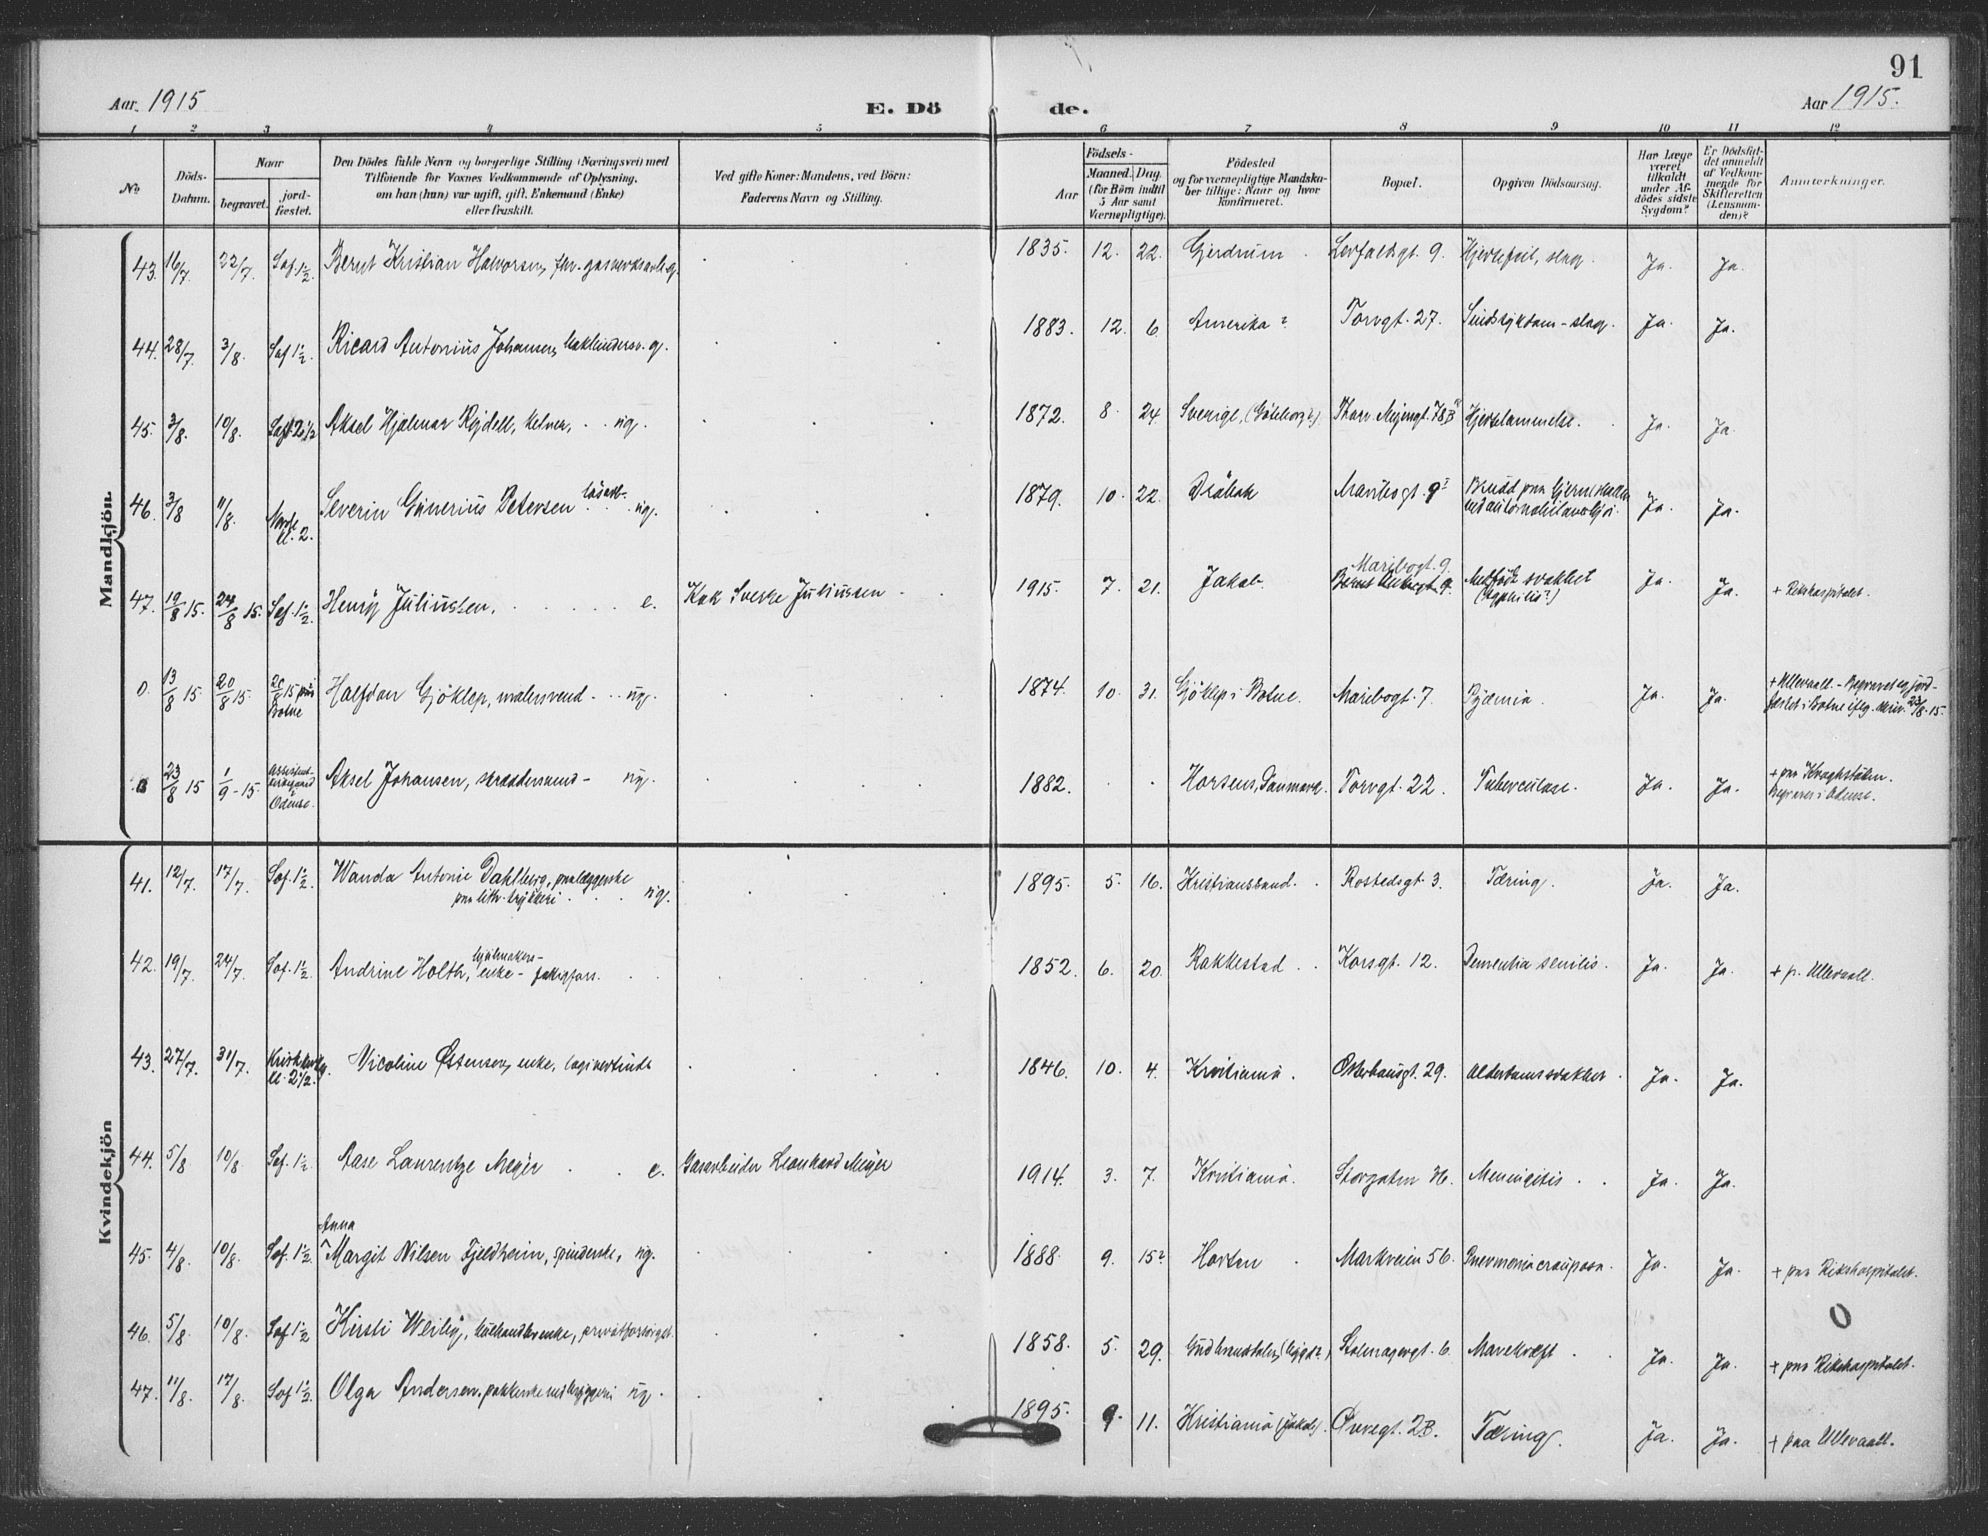 91
Aar 1915
E. Dö de.
Aar 1915.
1 2 3 4 5 6 7 8 9 10 11 12
No
Döds-Datum.
Naar
begravet.
jord-fæstet.
Den Dödes fulde Navn og borgerlige Stilling (Næringsvei) med
Tilföiende for Voxnes Vedkommende af Oplysning,
om han (hun) var ugift, gift, Enkemand (Enke)
eller fraskilt.
Ved gifte Koner: Mandens, ved Börn:
Faderens Navn og Stilling.
Födsels-
Aar
Maaned. Dag.
(for Börn indtil
5 Aar samt
Værnepligtige).
Födested
og for værnepligtige Mandska-
ber tillige: Naar og hvor
konfirmeret.
Bopæl.
Opgiven Dödsaarsag.
Har Læge
været
tilkaldt
under Af-
dödes sidste
Sygdom?
Er Dödsfal-
det anmeldt
af Vedkom-
mende for
Skifteretten
(Lensman-
den)?
Anmærkninger.
Mandkjön.
43. 16/7. 22/7. Sof. 1½. Bernt Kristian Halvorsen, fhv. gasverksarb. g. 1835. 12. 22. Gjerdrum. 9. Hjertefeil, slag. Ja. Ja.
44. 28/7. 3/8. Sof 1½. Ricard Antonius Johansen, g. 1883. 12. 6. Amerika? Torvgt. 27. Sindssykdom - slag. Ja. Ja.
45. 3/8. 10/8. Aksel Hjalmar Rydell, kelner, ug. 1872. 8. 24. Sverige, (Göteborg?) Thorv. Meyersgt. 78B Hjertelammelse. Ja. Ja.
46. 3/8 11/8. Nordre kl. 2. Severin Petersen lösarb. ug. 1879. 10. 22. Dröbak Maribogt. 9 Brudd paa Hjerneskallen Ja. Ja.
47. 19/8 15. 24/8 15. Sof. 1½. Henry Juliussen, e. Kok Sverke Juliussen 1915. 7. 21. Jakob Maribogt. 9. Medfödt svakhet (Syphilis?) Ja. Ja. + Rikshospitalet.
0. 13/8 15 20/8 15. 20/8 15 paa Botne Halfdan Gjöklep, malersvend ug. 1874. 10. 31. Gjöklep i Botne. Maribogt. 7. Pyæmia. Ja. Ja. + Ullevaall. - Begravet og jord-
fæstet i Botne iflg. skriv. 23/8-15.
0 23/8 15 1/9-15. Assistent-
kirkegaard
Odense. Aksel Johansen, skræddersvend - ug. 1882. Horsens, Danmark. Torvgt. 22. Tuberculose. Ja. Ja. + paa Kroghstöten.
Begraves i Odense.
Kvindekjön
41. 12/7. 17/7. Sof. 1½. Wanda Antonie Dahlberg, paalæggerske
paa lith. trykkeri ug. 1895. 5. 16. Kristianssand. Rostedsgt. 3. Tæring. Ja. Ja.
42. 19/7. 24/7. Sof. 1½. Andrine Holth, hjulmakers-
enke - fattigfors. 1852. 6. 20. Rakkestad Korsgt. 12. Dementia senilis. Ja. Ja. + p. Ullevaall.
43. 27/7. 31/7. kl. 2½. Nicoline Östensen, enke, logivertinde 1846. 10. 4. Kristiania. Osterhausgt. 29. Alderdomssvakhet. Ja. Ja.
44. 5/8 10/8. Sof. 1½. Aase Laurentze Meyer e. Gasarbeider Leonhard Meyer 1914. 3. 7. Kristiania. Storgaten 36. Meningitis. Ja. Ja.
45. 4/8. 10/8. Sof. 1½. Anna
Margit Nilsen Fjeldheim, spinderske, ug. 1888 9. 15? Horten Markveien 56. Pneumonia crouposa. Ja. Ja. + paa Rikshospitalet.
0
46. 5/8. 10/8. Sof 1½ Kirsti Weiby, privatforsörget. 1858. 5. 29. Stolmagergt. 6. Mavekræft Ja. Ja. + paa Rikshospitalet.
47. 11/8. 17/8. Sof 1½. Olga Andersen, pakkerske ved bryggeri ug. 1895. 9. 11. Kristiania (Jakob). Övregt. 2B. Tæring. Ja. Ja. + paa Ullevaall.